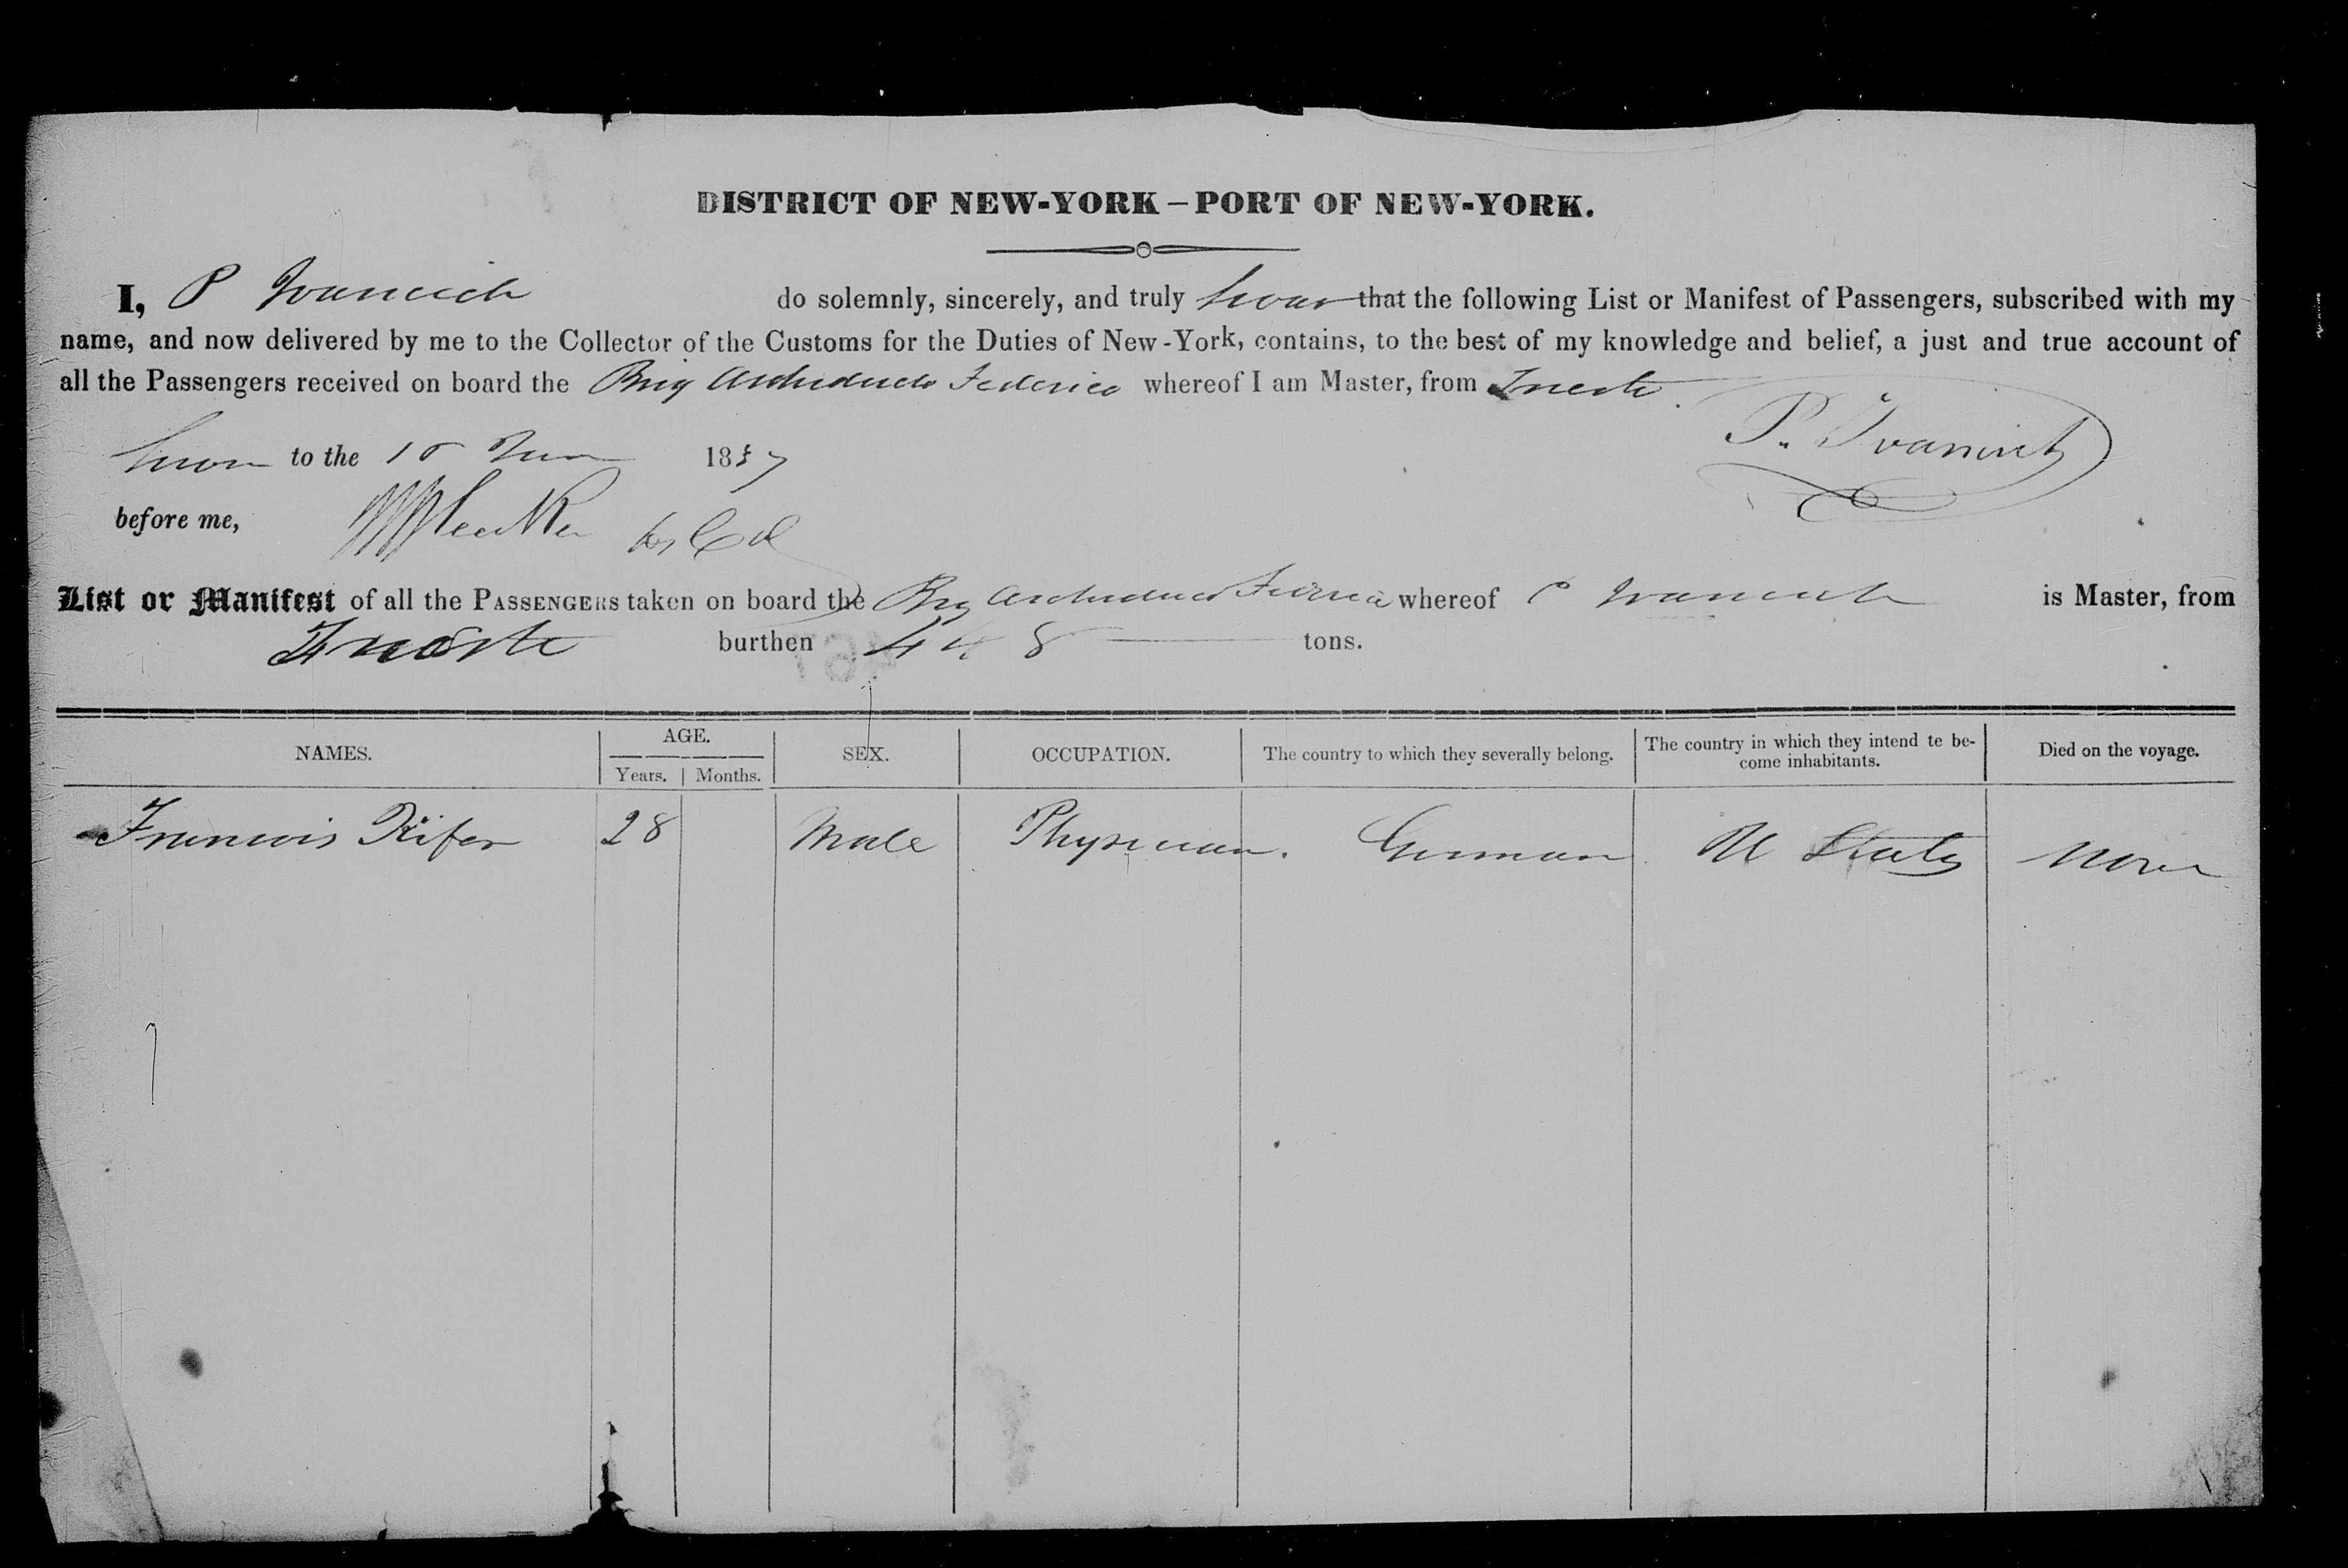 DISTRICT OF NEW-YORK – PORT OF NEW-YORK.
I, P Ivancich do solemnly, sincerely, and truly swear that the following List or Manifest of Passengers, subscribed with my
name, and now delivered by me to the Collector of the Customs for the Duties of New-York, contains, to the best of my knowledge and belief, a just and true account of
all the Passengers received on board the Brig Archiduca Federico whereof I am Master, from Trieste
Sworn to the 1837
P. Ivancich
before me,
List or Manifest of all the PASSENGERS taken on board the Brig Archiduca Federico whereof P Ivancich is Master, from
Trieste burthen 448 tons.
NAMES. AGE. SEX. OCCUPATION. The country to which they severally belong. The country in which they intend te be-
come inhabitants. Died on the voyage.
Years. Months.
Francois 28 Male Physician. German U States None